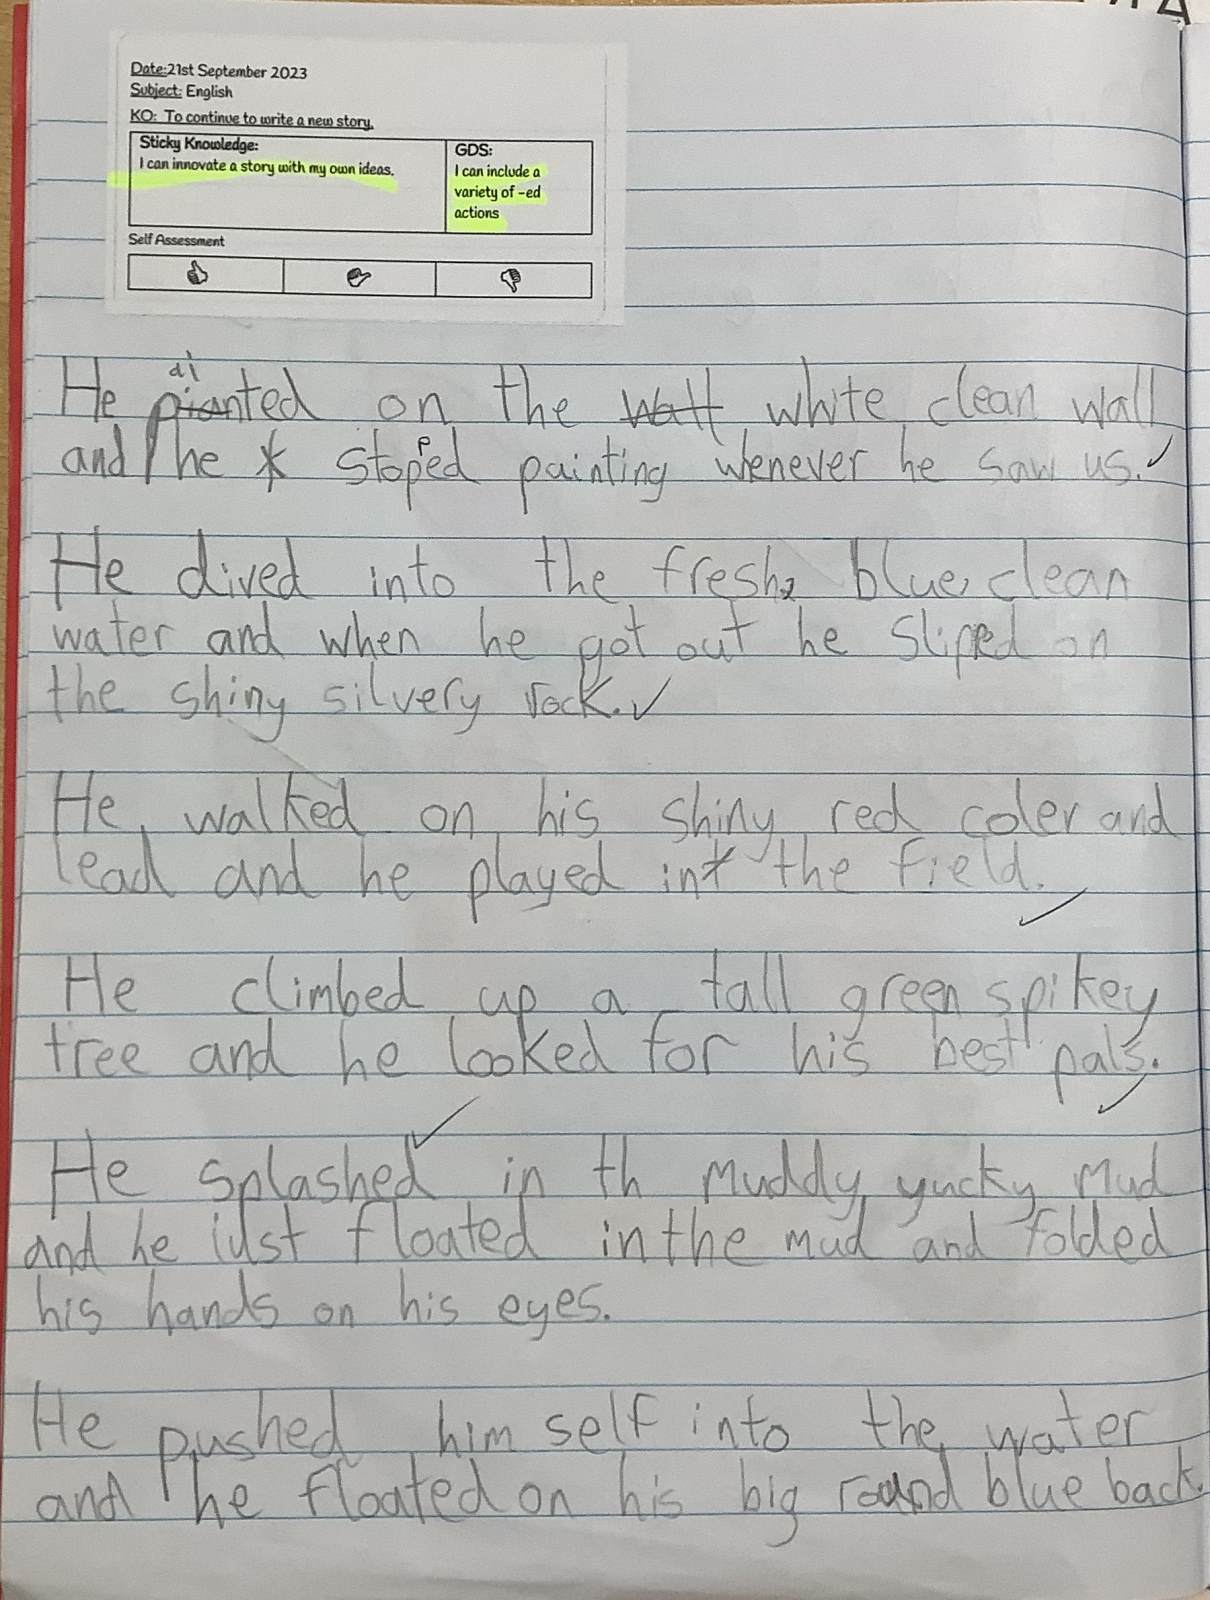 Date:21st September 2023
Subject: English
KO: To continue to write a new story.
Sticky Knowledge:
I can innovate a story with my own ideas.
GDS:
I can include a
variety of -ed
actions
Self Assessment
He painted on the white clean wall
and he stopped painting whenever he saw us.
He dived into the fresh, blue, clean
water and when he got out he Slipped on
the shiny silvery rock.
He walked on his shiny red coler and
lead and he played in the field.
He climbed up a tall green spikey
tree and he looked for his best pals.
He splashed in th muddy yucky mud
and he just floated in the mud and folded
his hands on his eyes.
He pushed him self into the water
and he floated on his big round blue back.